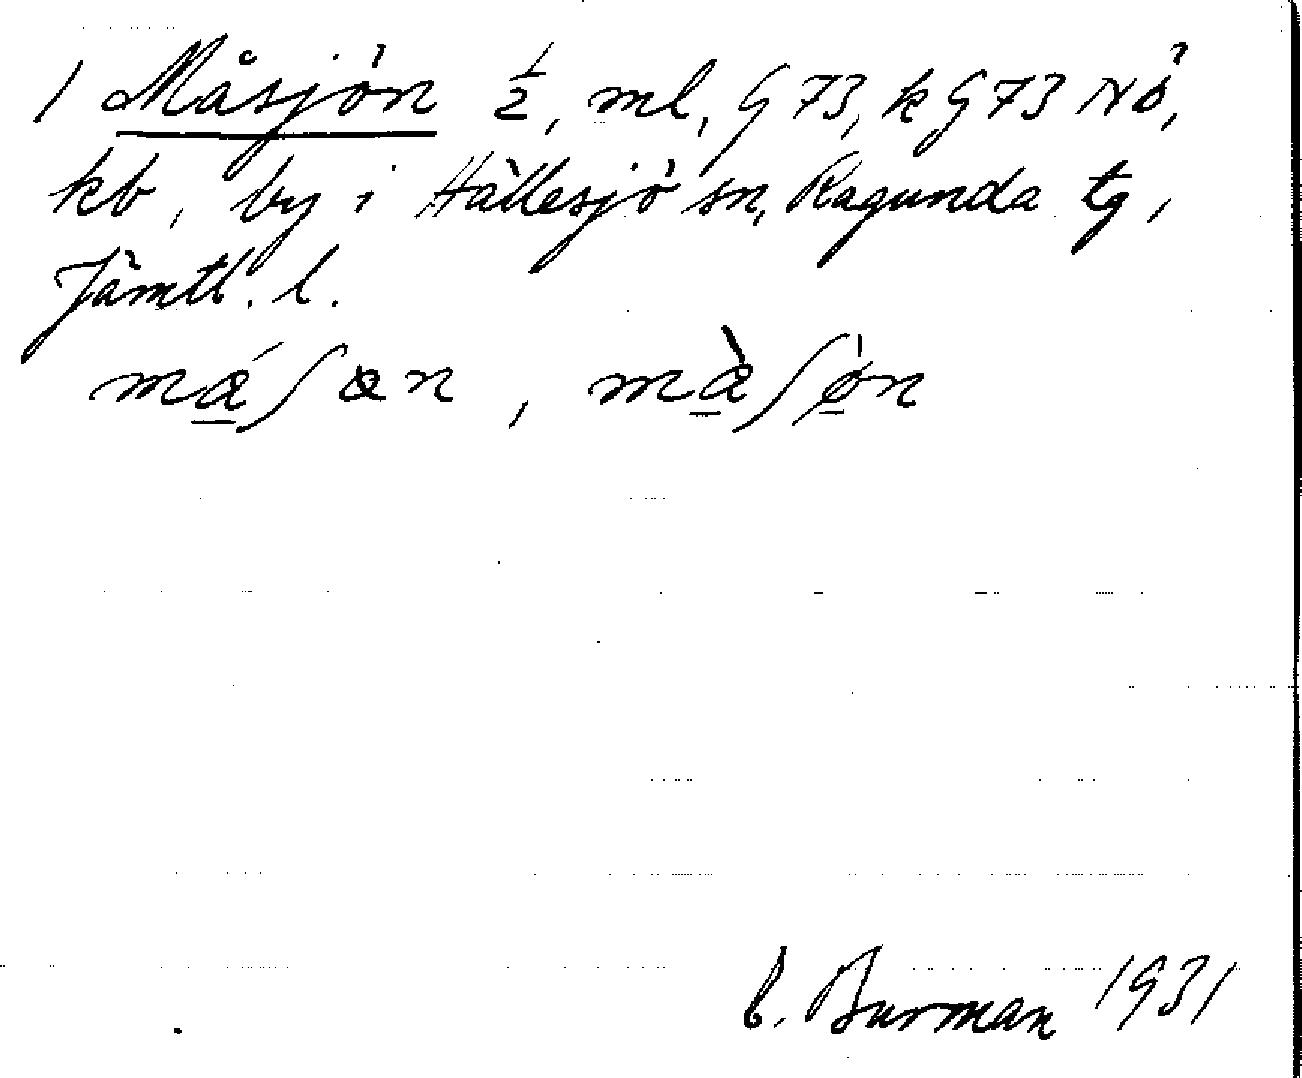 1 Måsjön ½, ml, G 73, k G 73 NÖ,
kb, by i Hällesjö sn, Ragunda tg,
Jämtl. l.
mǽʃæn, mæ̀ʃøn
C. Burman 1931